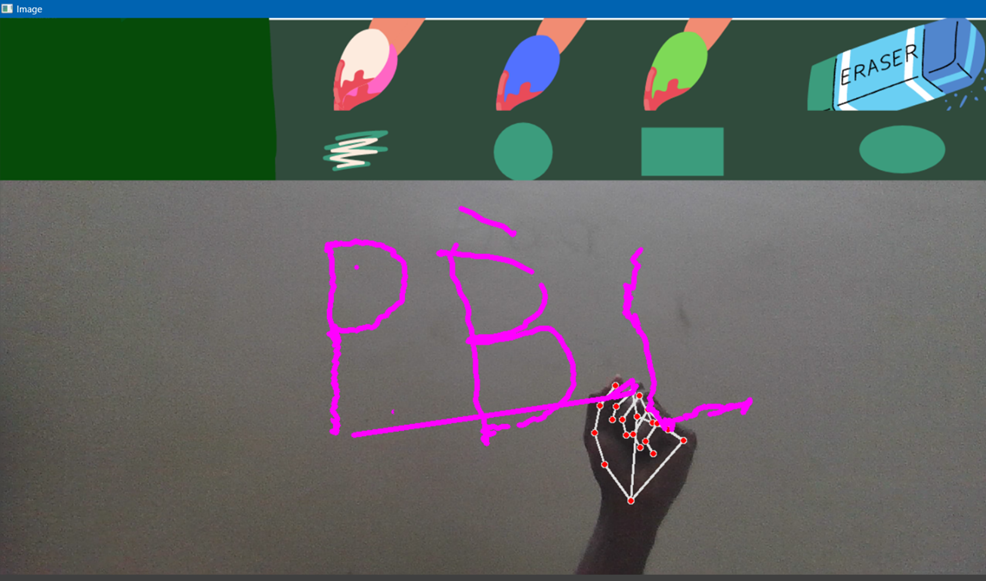 Image
ERASER
PBL